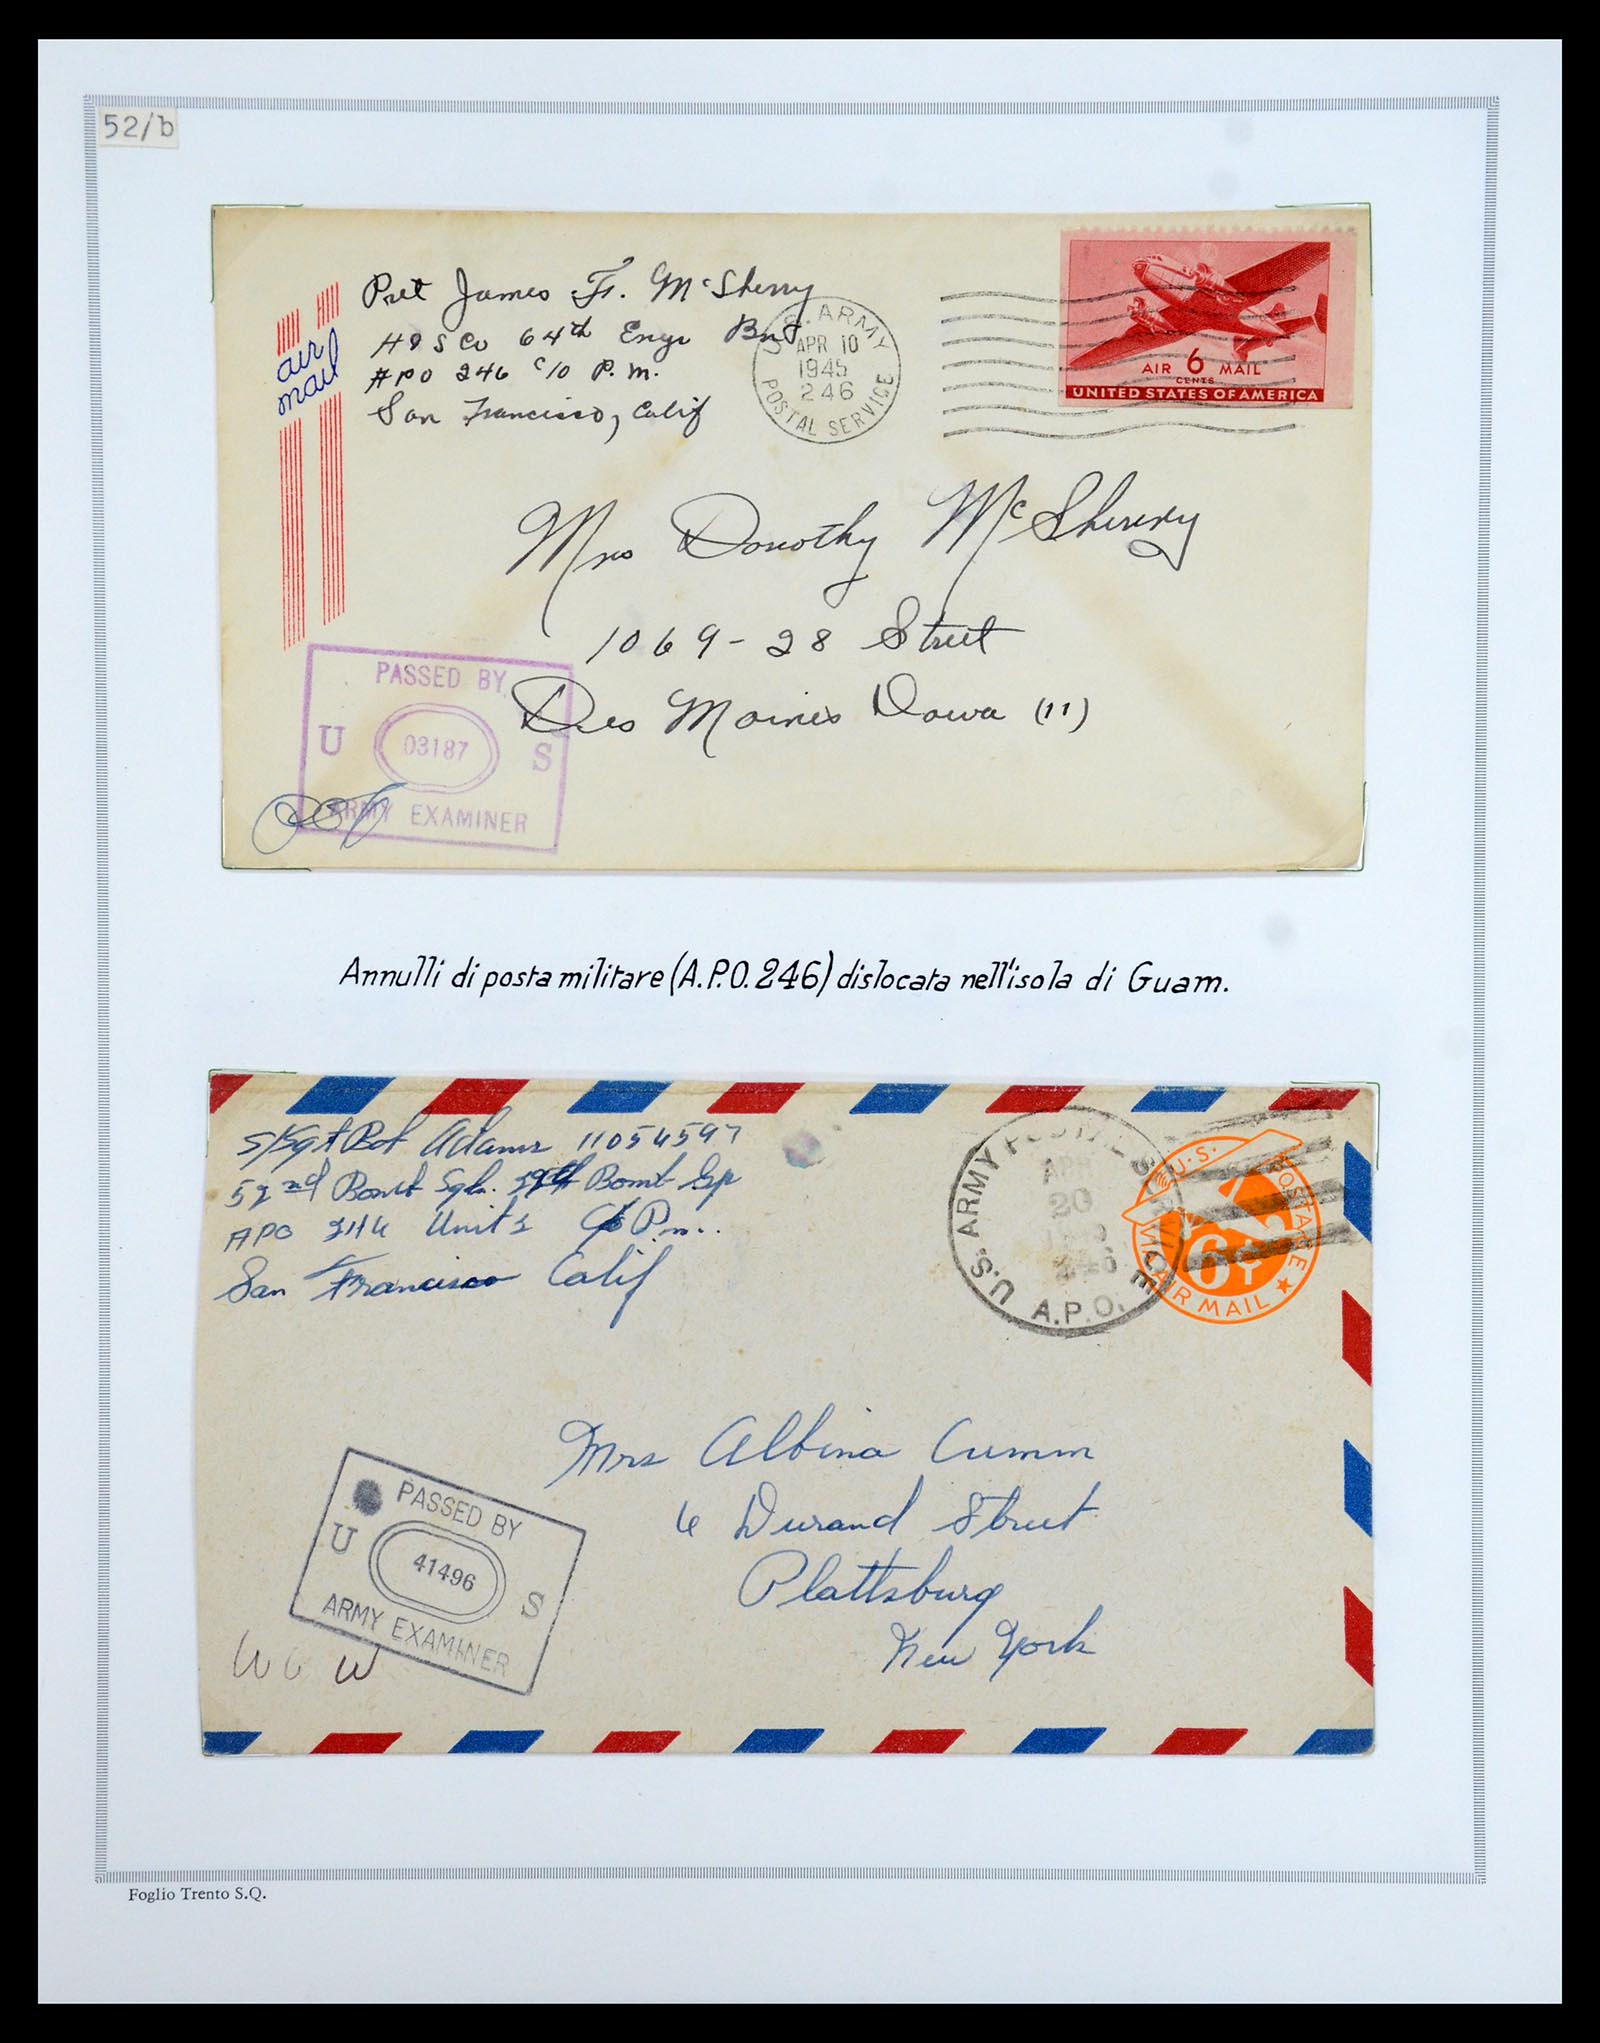 52/b
air
mail
Pvt James F. McSherry
H & S Co 64th Engr Bn
APO 246 c/o P.M.
San Francisco, Calif
U.S. ARMY
APR 10
1945
246
POSTAL SERVICE
AIR 6 MAIL
CENTS
UNITED STATES OF AMERICA
Mrs Dorothy McSherry
1069-28 Street
Des Moines Iowa (11)
PASSED BY
U 03187 S
ARMY EXAMINER
Annulli di posta militare (A.P.O. 246) dislocata nell'isola di Guam.
S/Sgt Bob Adams 11054597
52nd Bomb Sqdn. Bomb Gp
APO 246 Unit 2 c/o P.m..
San Francisco Calif
U.S. ARMY POSTAL SERVICE
APR
20
246
A.P.O.
U.S. POSTAGE
6¢
AIR MAIL
Mrs Albina Cumm
6 Durand Street
Plattsburg
New York
PASSED BY
U 41496 S
ARMY EXAMINER
Foglio Trento S.Q.